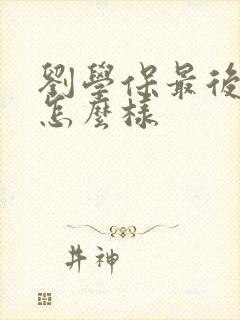 劉學保最後
怎麼樣
井神